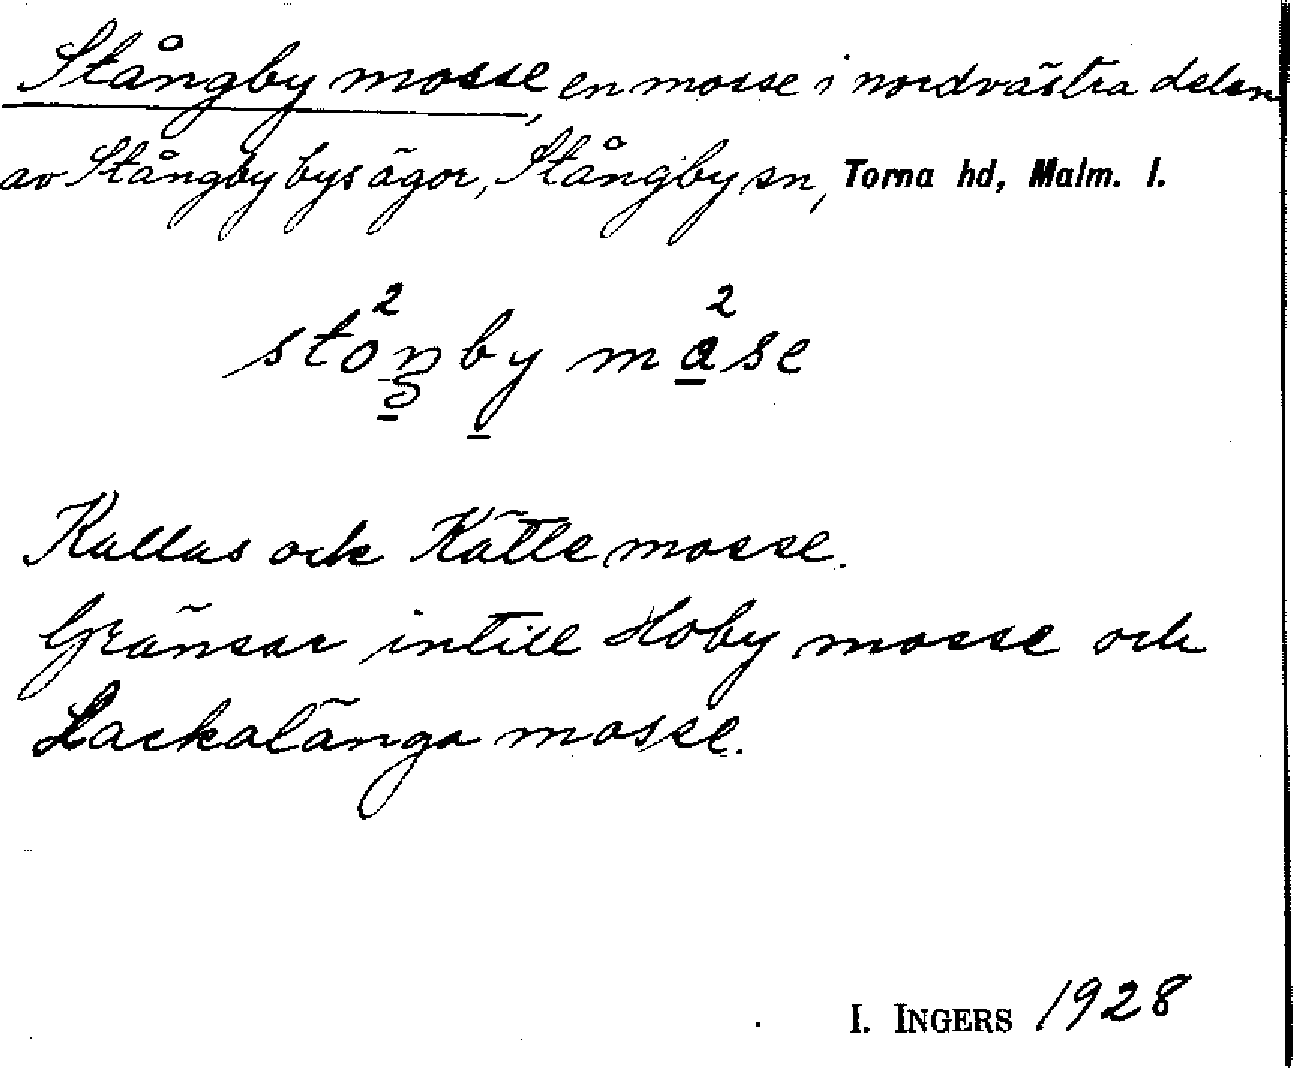 Stångby mosse, en mosse i nordvästra delen
av Stångby bys ägor, Stångby sn, Torna hd, Malm. l.
sto²ŋby ma²se
Kallas ock Kättemosse.
Gränsar intill Hoby mosse och
Lackalänga mosse.
I. INGERS 1928